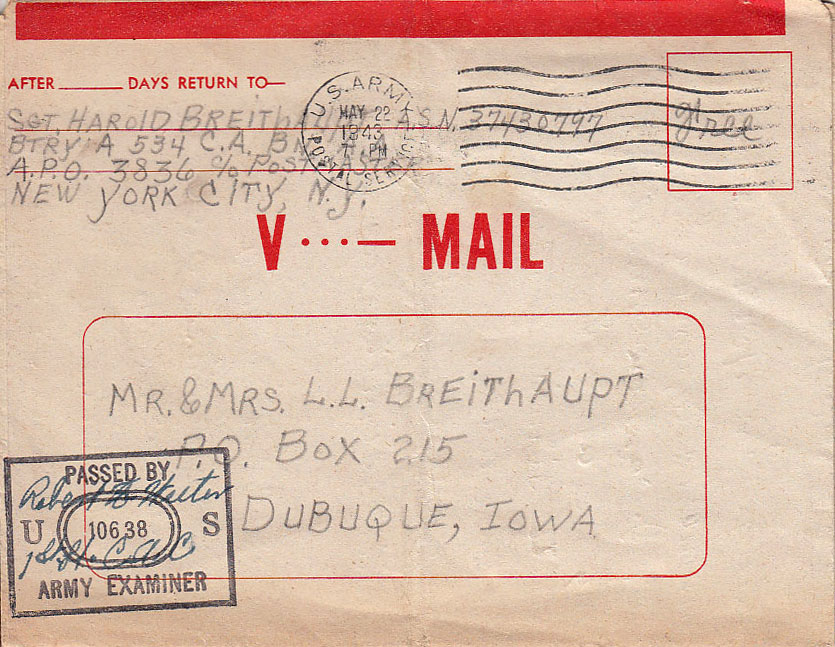 AFTER ______ DAYS RETURN TO—
SGT. HAROLD BREITHAUPT A.S.N. 37430797
Free
BTRY. A 534 C.A. BN.
A.P.O. 3836 c/o POSTMASTER
NEW YORK CITY, N.Y.
U.S. ARMY
MAY 22
1943
7 PM
POSTAL SERVICE
V ···— MAIL
MR. & MRS. L.L. BREITHAUPT
P.O. BOX 215
DUBUQUE, IOWA
PASSED BY
Robert W Walter
U 10638 S
1st Lt. C.A.C.
ARMY EXAMINER